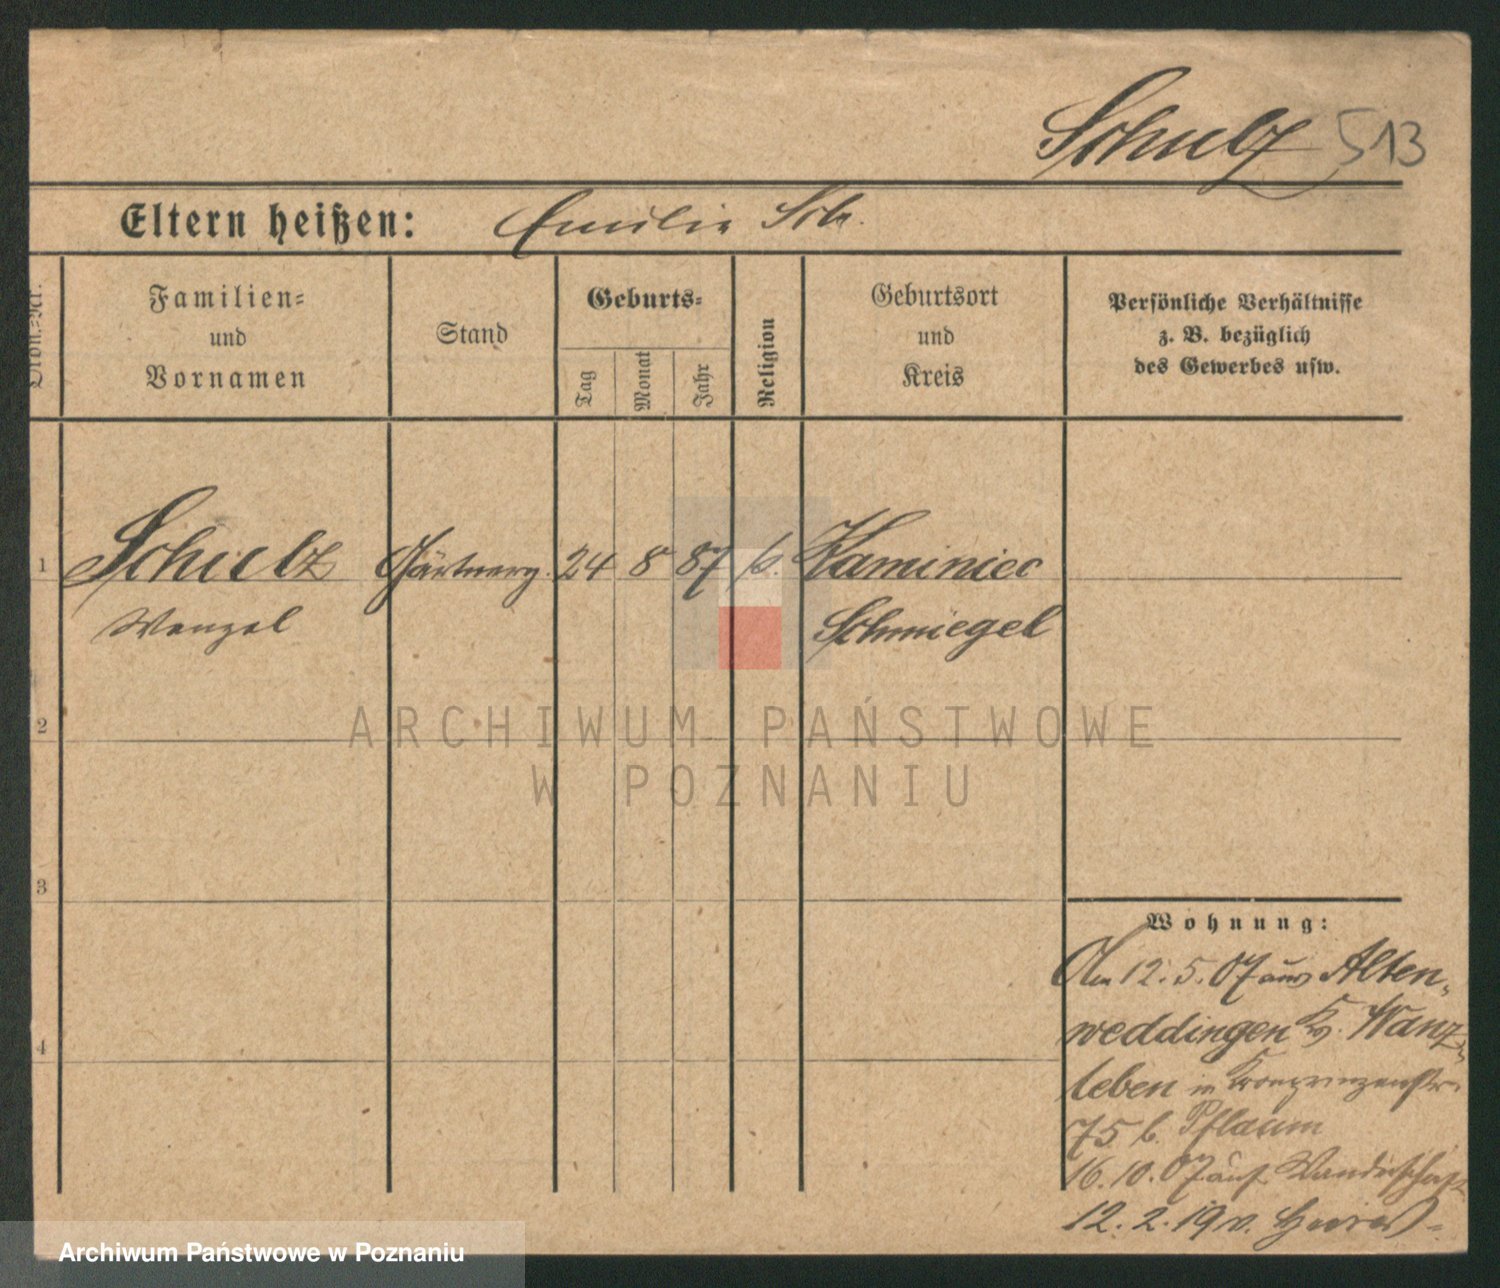 Schulz 513
Eltern heißen: Emilie Sch.
Ordn.-Nr.
Familien-
und
Vornamen
Stand
Geburts-
Tag
Monat
Jahr
Religion
Geburtsort
und
Kreis
Persönliche Verhältnisse
z. B. bezüglich
des Gewerbes usw.
1 Schulz Gärtnerg. 24 8 87 k. Kaminiec
Wenzel Schmiegel
2
3
4
Wohnung:
Am 12.5.07 aus Alten-
weddingen Kr. Wanz-
leben in Kronprinzenstr.
75 b. Pflaum
16.10.07 auf Wanderschaft
12.2.19 v.
ARCHIWUM PAŃSTWOWE
W POZNANIU
Archiwum Państwowe w Poznaniu